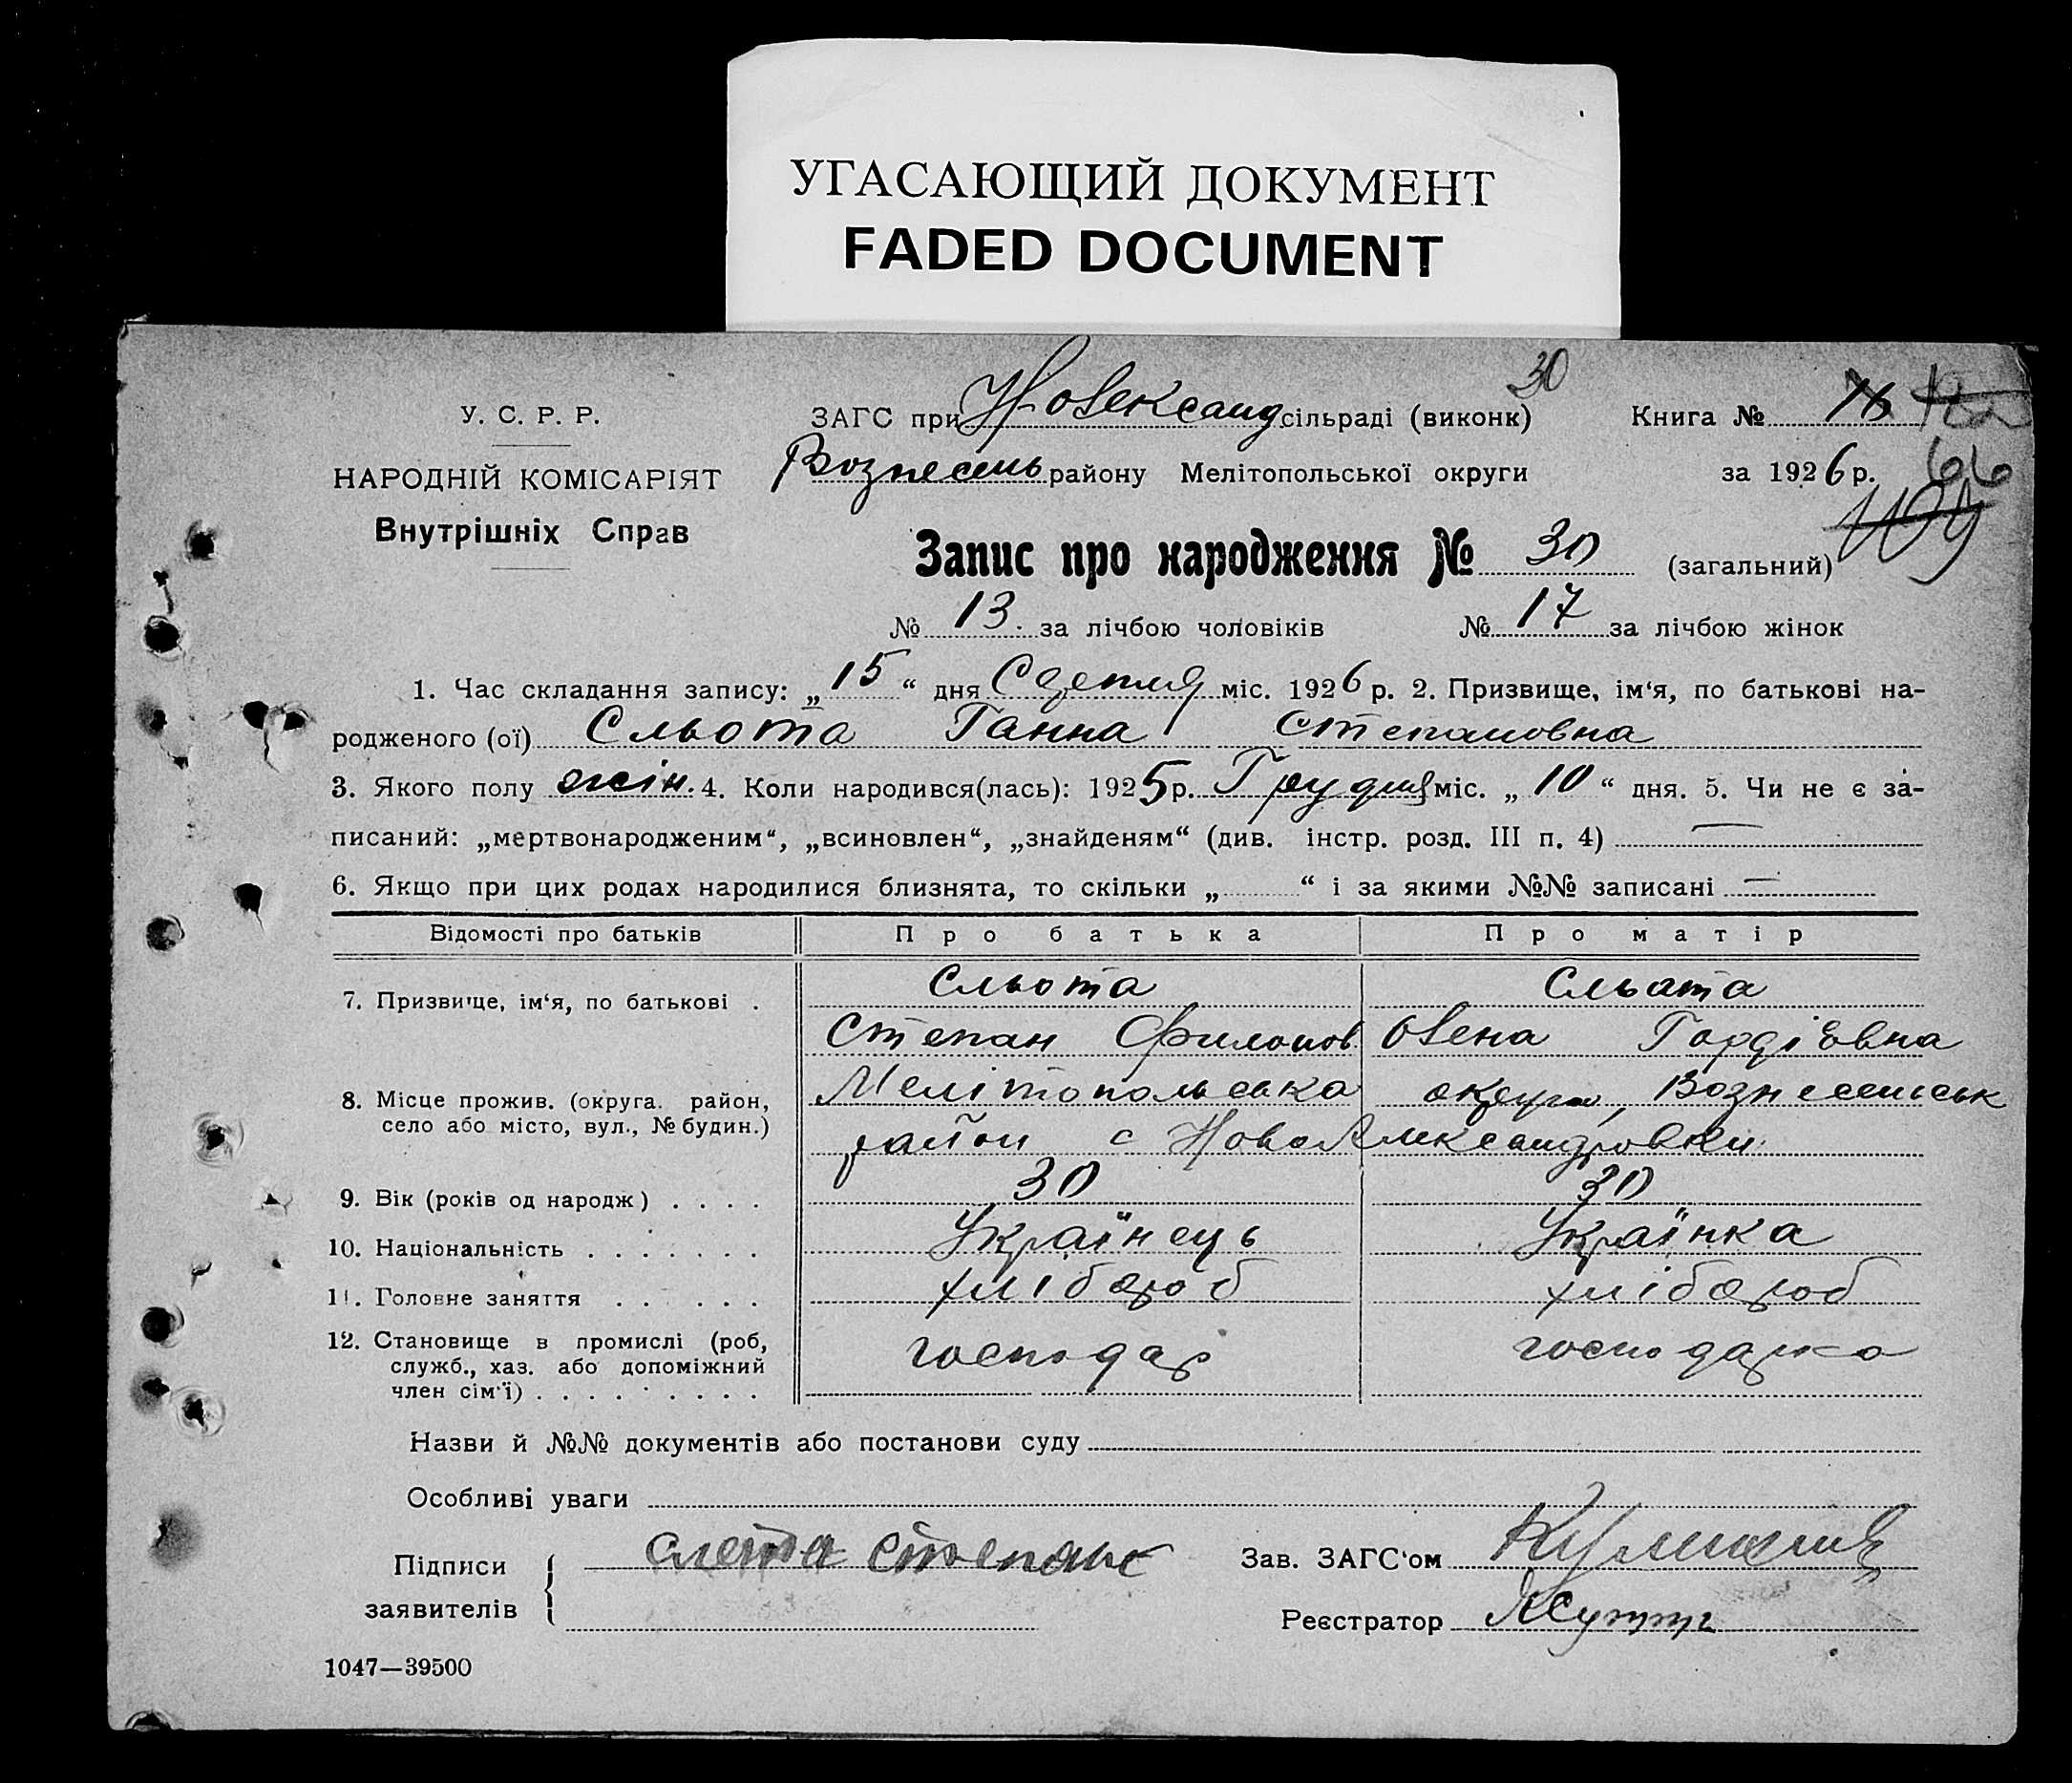 УГАСАЮЩИЙ ДОКУМЕНТ
FADED DOCUMENT
30
У. С. Р. Р.
НАРОДНІЙ КОМІСАРІЯТ
Внутрішніх Справ
ЗАГС при Новександ сільраді (виконк)
Книга №
Вознесень району Мелітопольської округи
за 1926 р. 66
109
Запис про народження № 30 (загальний)
№ 13. за лічбою чоловіків № 17 за лічбою жінок
1. Час складання запису: „15“ дня міс. 1926 р. 2. Призвище, ім‘я, по батькові на-
родженого (ої) Сльота Ганна Степановна
3. Якого полу жін. 4. Коли народився(лась): 1925 р. Грудня міс. „10“ дня. 5. Чи не є за-
писаний: „мертвонародженим“, „всиновлен“, „знайденям“ (див. інстр. розд. III п. 4) —
6. Якщо при цих родах народилися близнята, то скільки „ “ і за якими №№ записані —
Відомості про батьків Про батька Про матір
7. Призвище, ім‘я, по батькові . Сльота Сльота
Степан Филонов. Овена Гордієвна
8. Місце прожив. (округа. район, село або місто, вул., № будин.) Мелітопольська округа, Вознесенськ
район с НовоАлександровки
9. Вік (років од народж) . . . . 30 30
10. Національність . . . . . . . Українець Українка
11. Головне заняття . . . . . хлібороб хлібороб
12. Становище в промислі (роб, служб., хаз. або допоміжний член сім‘ї) . . . . . . . . . господар господарка
Назви й №№ документів або постанови суду
Особливі уваги
Підписи заявителів Слета Степан
Зав. ЗАГС‘ом
Реєстратор
1047—39500